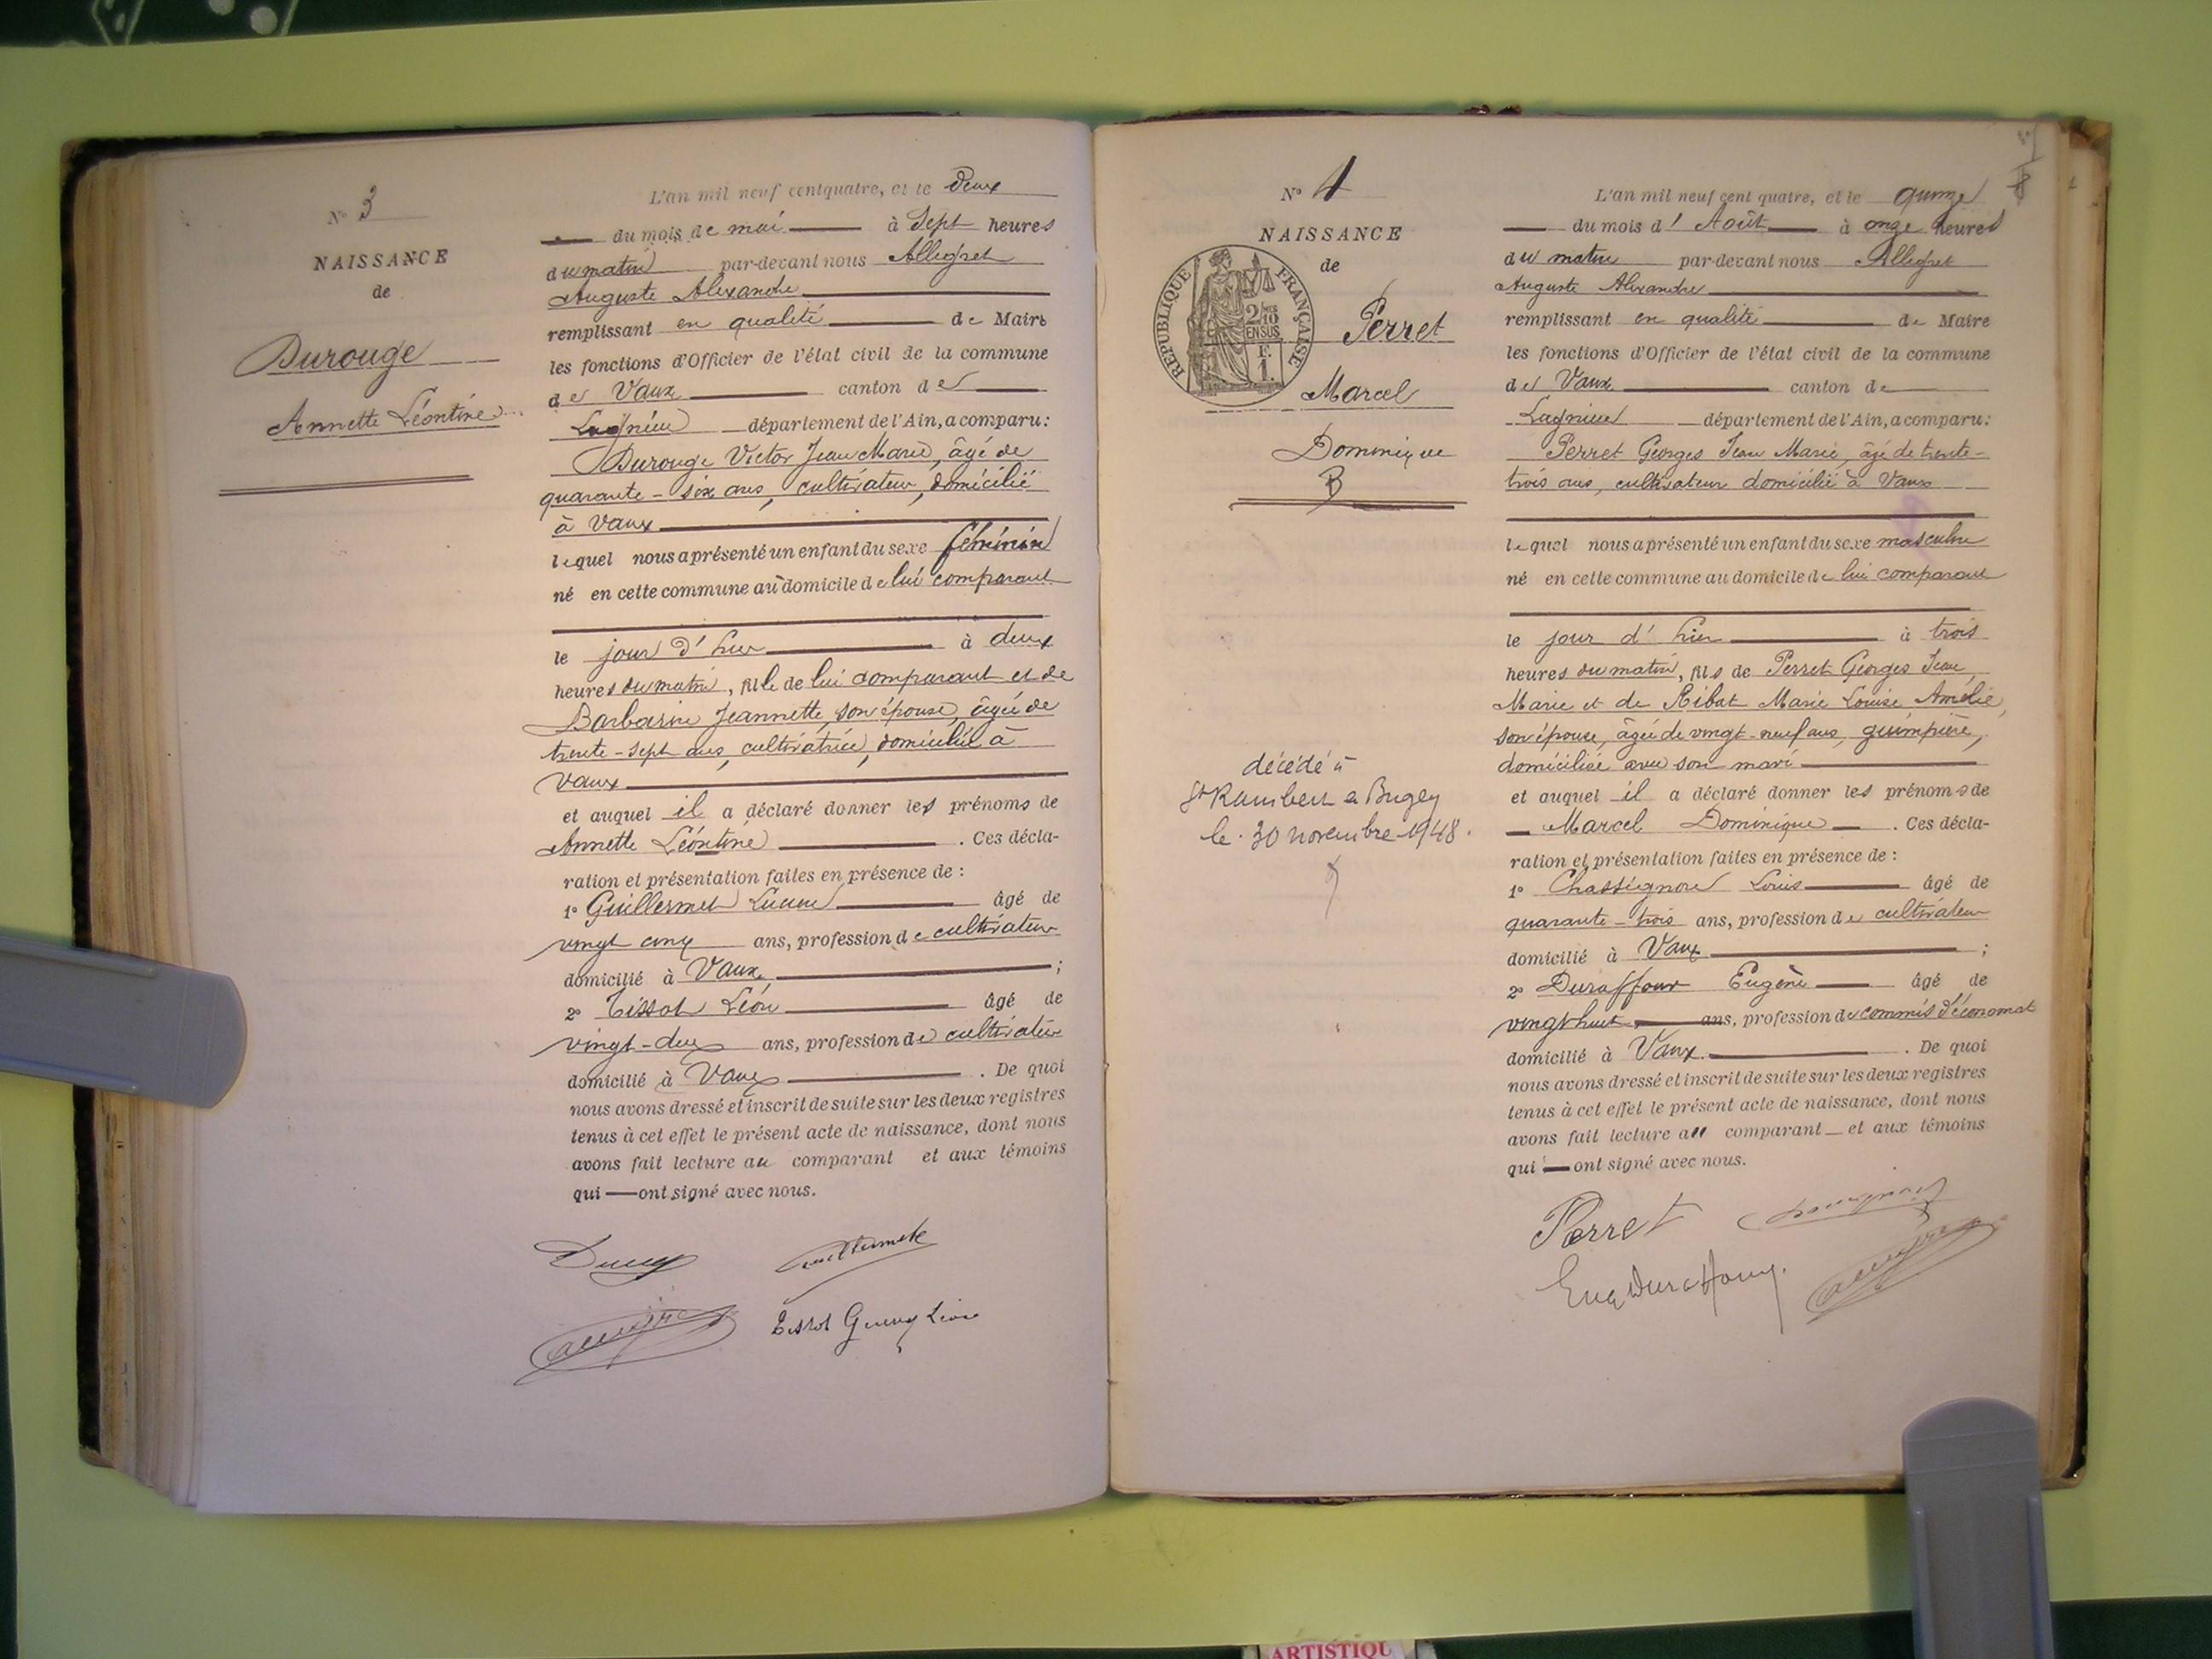 N° 3
NAISSANCE
de
Durouge
Annette Léontine
L'an mil neuf cent quatre, et le Deux
du mois de mai à Sept heures
du matin par-devant nous Allegret
Auguste Alexandre
remplissant en qualité de Maire
les fonctions d'Officier de l'état civil de la commune
de Vaux canton de
Lagnieu département de l'Ain, a comparu:
Durouge Victor Jean Marie, âgé de
quarante-six ans, cultivateur, domicilié
à Vaux
lequel nous a présenté un enfant du sexe féminin
né en cette commune au domicile de lui comparant
le jour d'hier à deux
heures du matin, fille de lui comparant et de
Barbarin Jeannette, son épouse, âgée de
trente-sept ans, cultivatrice, domiciliée à
Vaux
et auquel il a déclaré donner les prénoms de
Annette Léontine . Ces décla-
ration et présentation faites en présence de :
1° Guillermet âgé de
vingt cinq ans, profession de cultivateur
domicilié à Vaux ;
2° Tissot Léon âgé de
vingt-deux ans, profession de cultivateur
domicilié à Vaux . De quoi
nous avons dressé et inscrit de suite sur les deux registres
tenus à cet effet le présent acte de naissance, dont nous
avons fait lecture au comparant et aux témoins
qui ont signé avec nous.
Guillermet
Tissot Léon
N° 4
NAISSANCE
de
RÉPUBLIQUE FRANÇAISE
2/10
EN SUS
F.
1.
Perret
Marcel
Dominique
B
décédé à
St Rambert en Bugey
le 30 novembre 1948.
L'an mil neuf cent quatre, et le quinze
du mois d'Août à onze heures
du matin par-devant nous Allegret
Auguste Alexandre
remplissant en qualité de Maire
les fonctions d'Officier de l'état civil de la commune
de Vaux canton de
Lagnieu département de l'Ain, a comparu:
Perret Georges Jean Marie, âgé de trente-
trois ans, cultivateur domicilié à Vaux
lequel nous a présenté un enfant du sexe masculin
né en cette commune au domicile de lui comparant
le jour d'hier à trois
heures du matin, fils de Perret Georges Jean
Marie et de Ribat Marie Louise Amélie,
son épouse, âgée de vingt-neuf ans, guimpière,
domiciliée avec son mari
et auquel il a déclaré donner les prénoms de
Marcel Dominique . Ces décla-
ration et présentation faites en présence de :
1° Chassignon Louis âgé de
quarante-trois ans, profession de cultivateur
domicilié à Vaux ;
2° Duraffour Eugène âgé de
vingt huit ans, profession de commis d'économat
domicilié à Vaux . De quoi
nous avons dressé et inscrit de suite sur les deux registres
tenus à cet effet le présent acte de naissance, dont nous
avons fait lecture au comparant et aux témoins
qui ont signé avec nous.
Perret
Eug Duraffour
ARTISTIQU